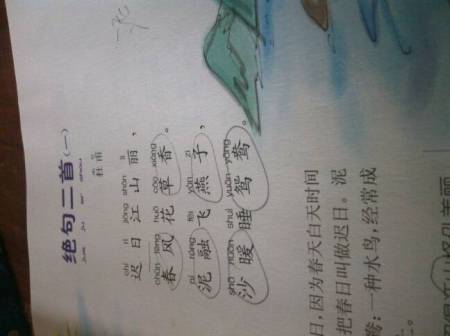 绝句二首(一)
杜甫
chí rì jiāng shān lì
迟日江山丽，
chūn fēng huā cǎo xiāng
春风花草香。
ní róng fēi yàn zǐ
泥融飞燕子，
shā nuǎn shuì yuān yāng
沙暖睡鸳鸯。
日，因为春天白天时间
把春日叫做迟日。泥
鸯：一种水鸟，经常成